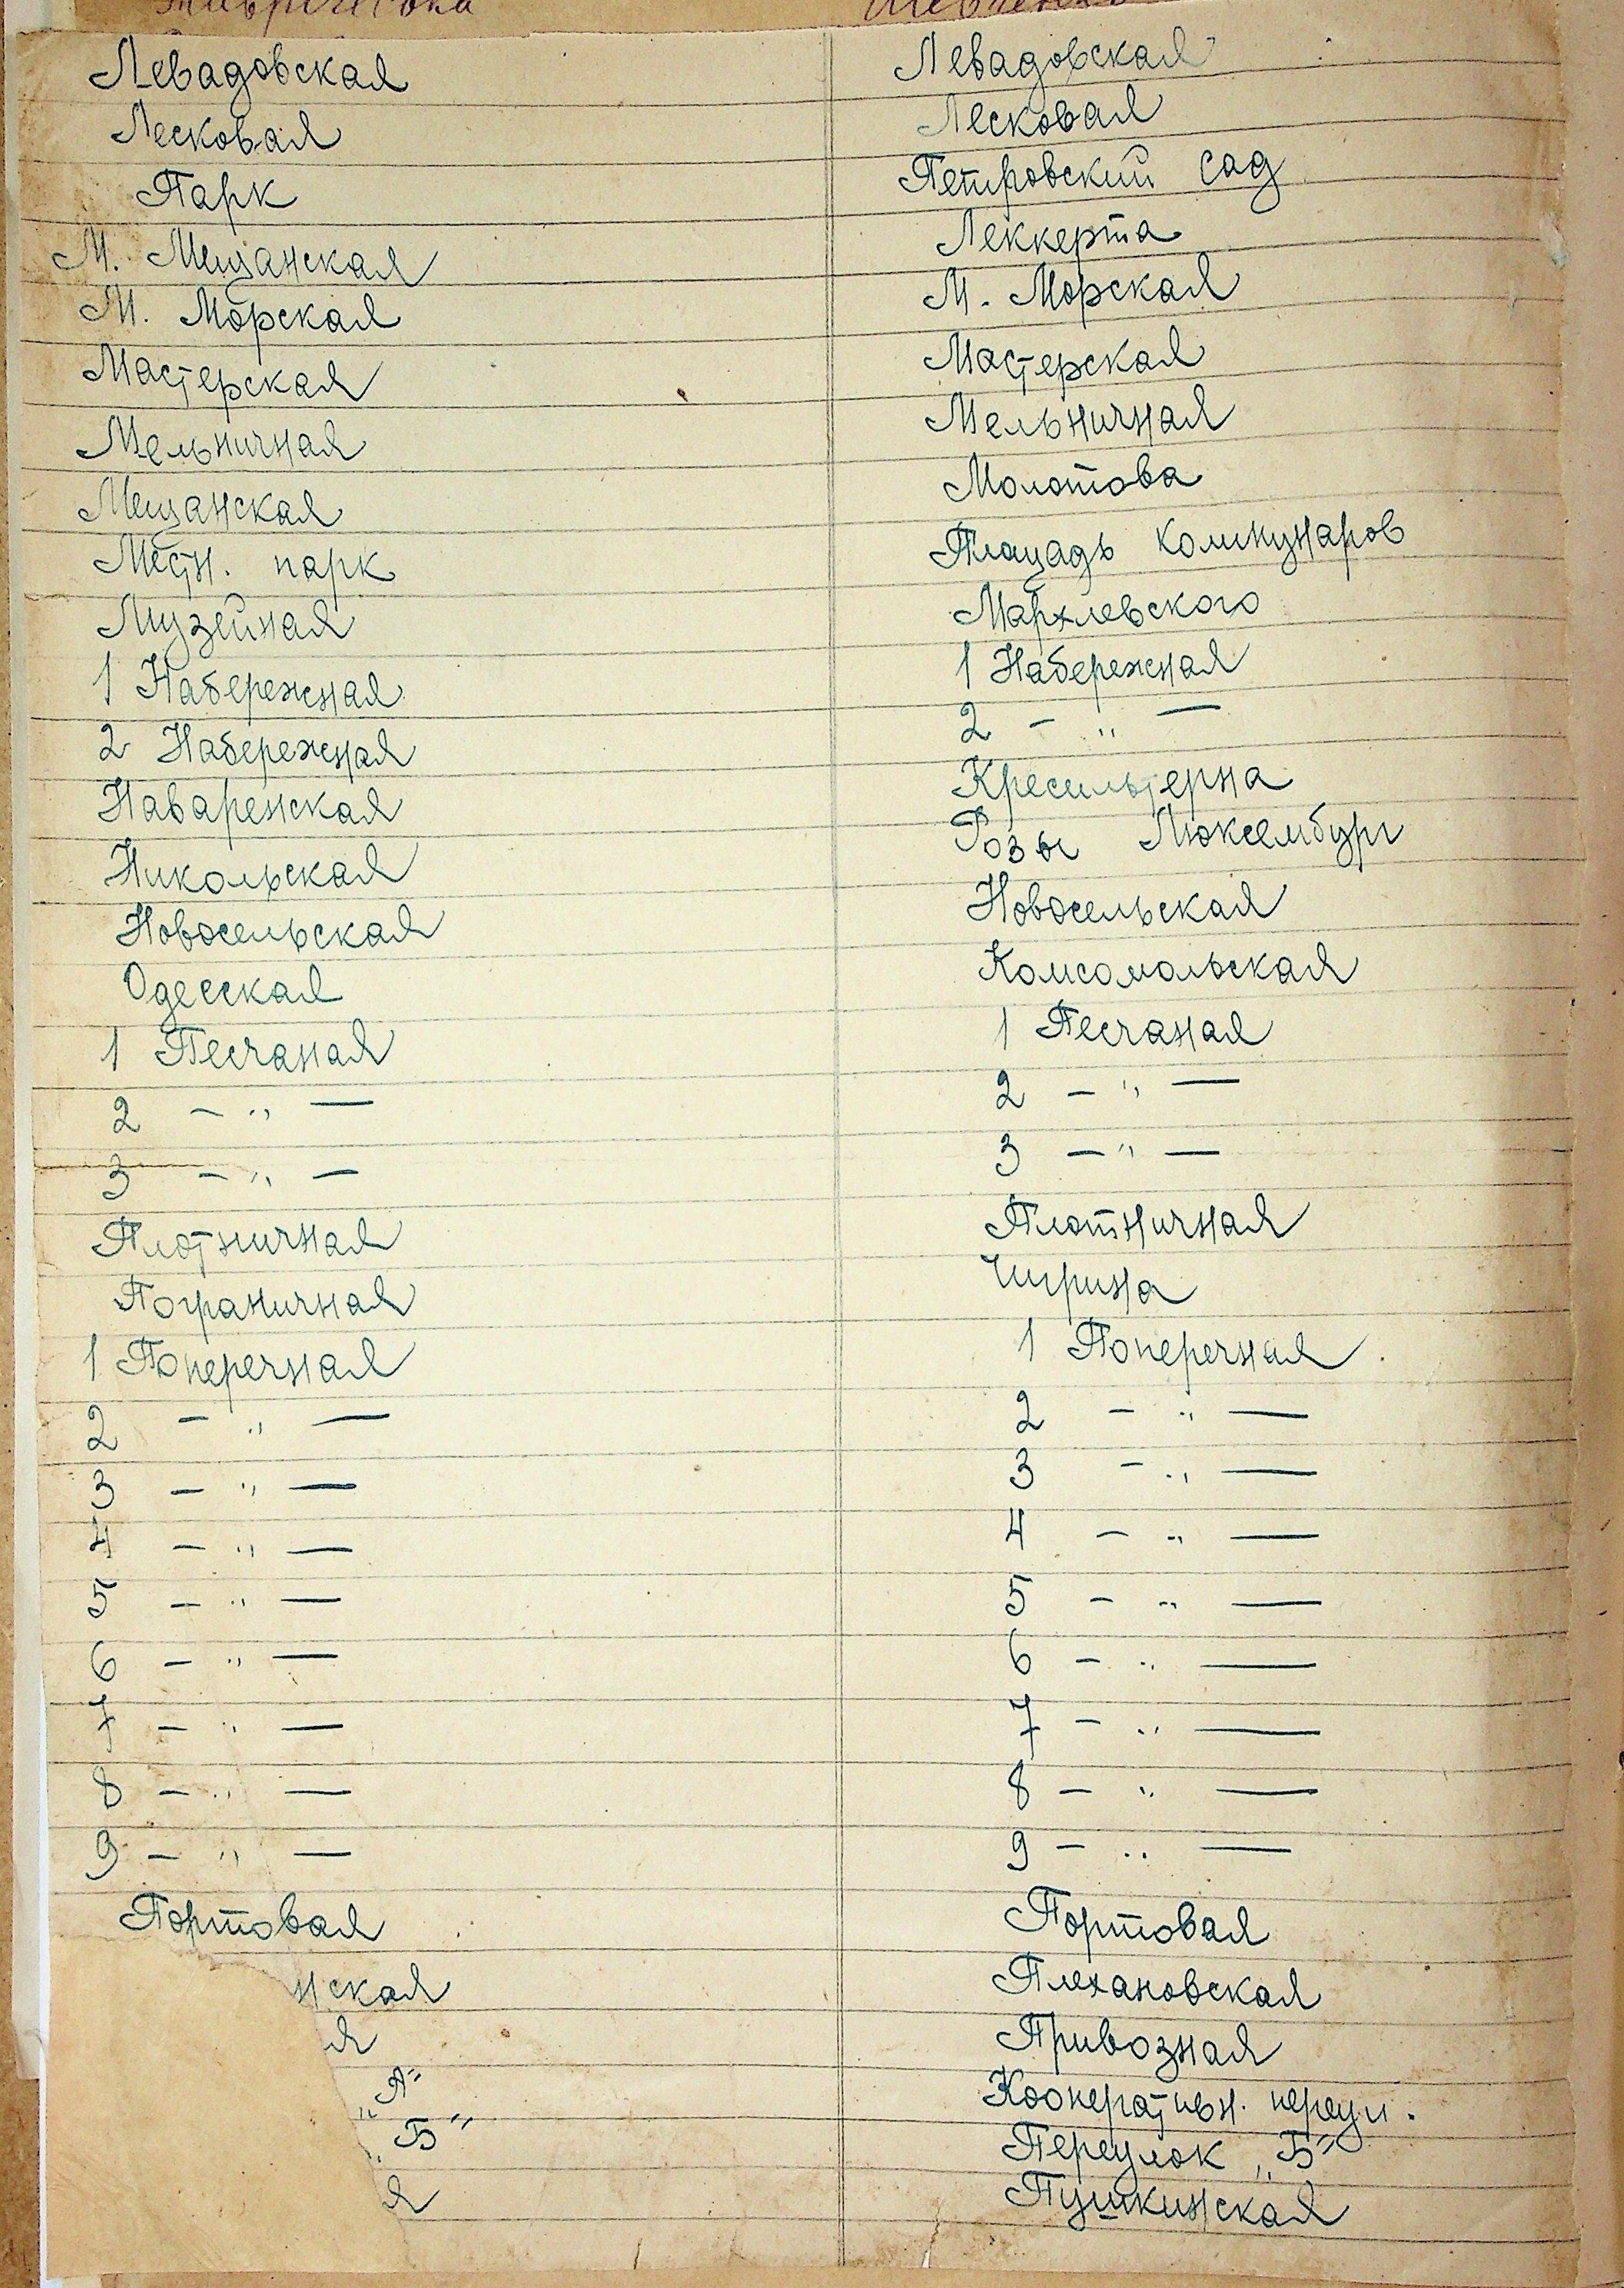 Левадовская Левадовская
Лесковая Лесковая
Парк Петровский сад
М. Мещанская Леккерта
М. Морская М. Морская
Мастерская Мастерская
Мельничная Мельничная
Мещанская Молотова
Местн. парк Площадь коммунаров
Музейная Мархлевского
1 Набережная 1 Набережная
2 Набережная 2 - " -
Наваренская
Никольская Розы Люксембург
Новосельская Новосельская
Одесская Комсомольская
1 Песчаная 1 Песчаная
2 - " - 2 - " -
3 - " - 3 - " -
Плотничная Плотничная
Пограничная Чигрина
1 Поперечная 1 Поперечная
2 - " - 2 - " -
3 - " - 3 - " -
4 - " - 4 - " -
5 - " - 5 - " -
6 - " - 6 - " -
7 - " - 7 - " -
8 - " - 8 - " -
9 - " - 9 - " -
Портовая Портовая
нская Плехановская
я Привозная
„А" Кооперативн. переул.
„Б" Переулок „Б"
я Пушкинская